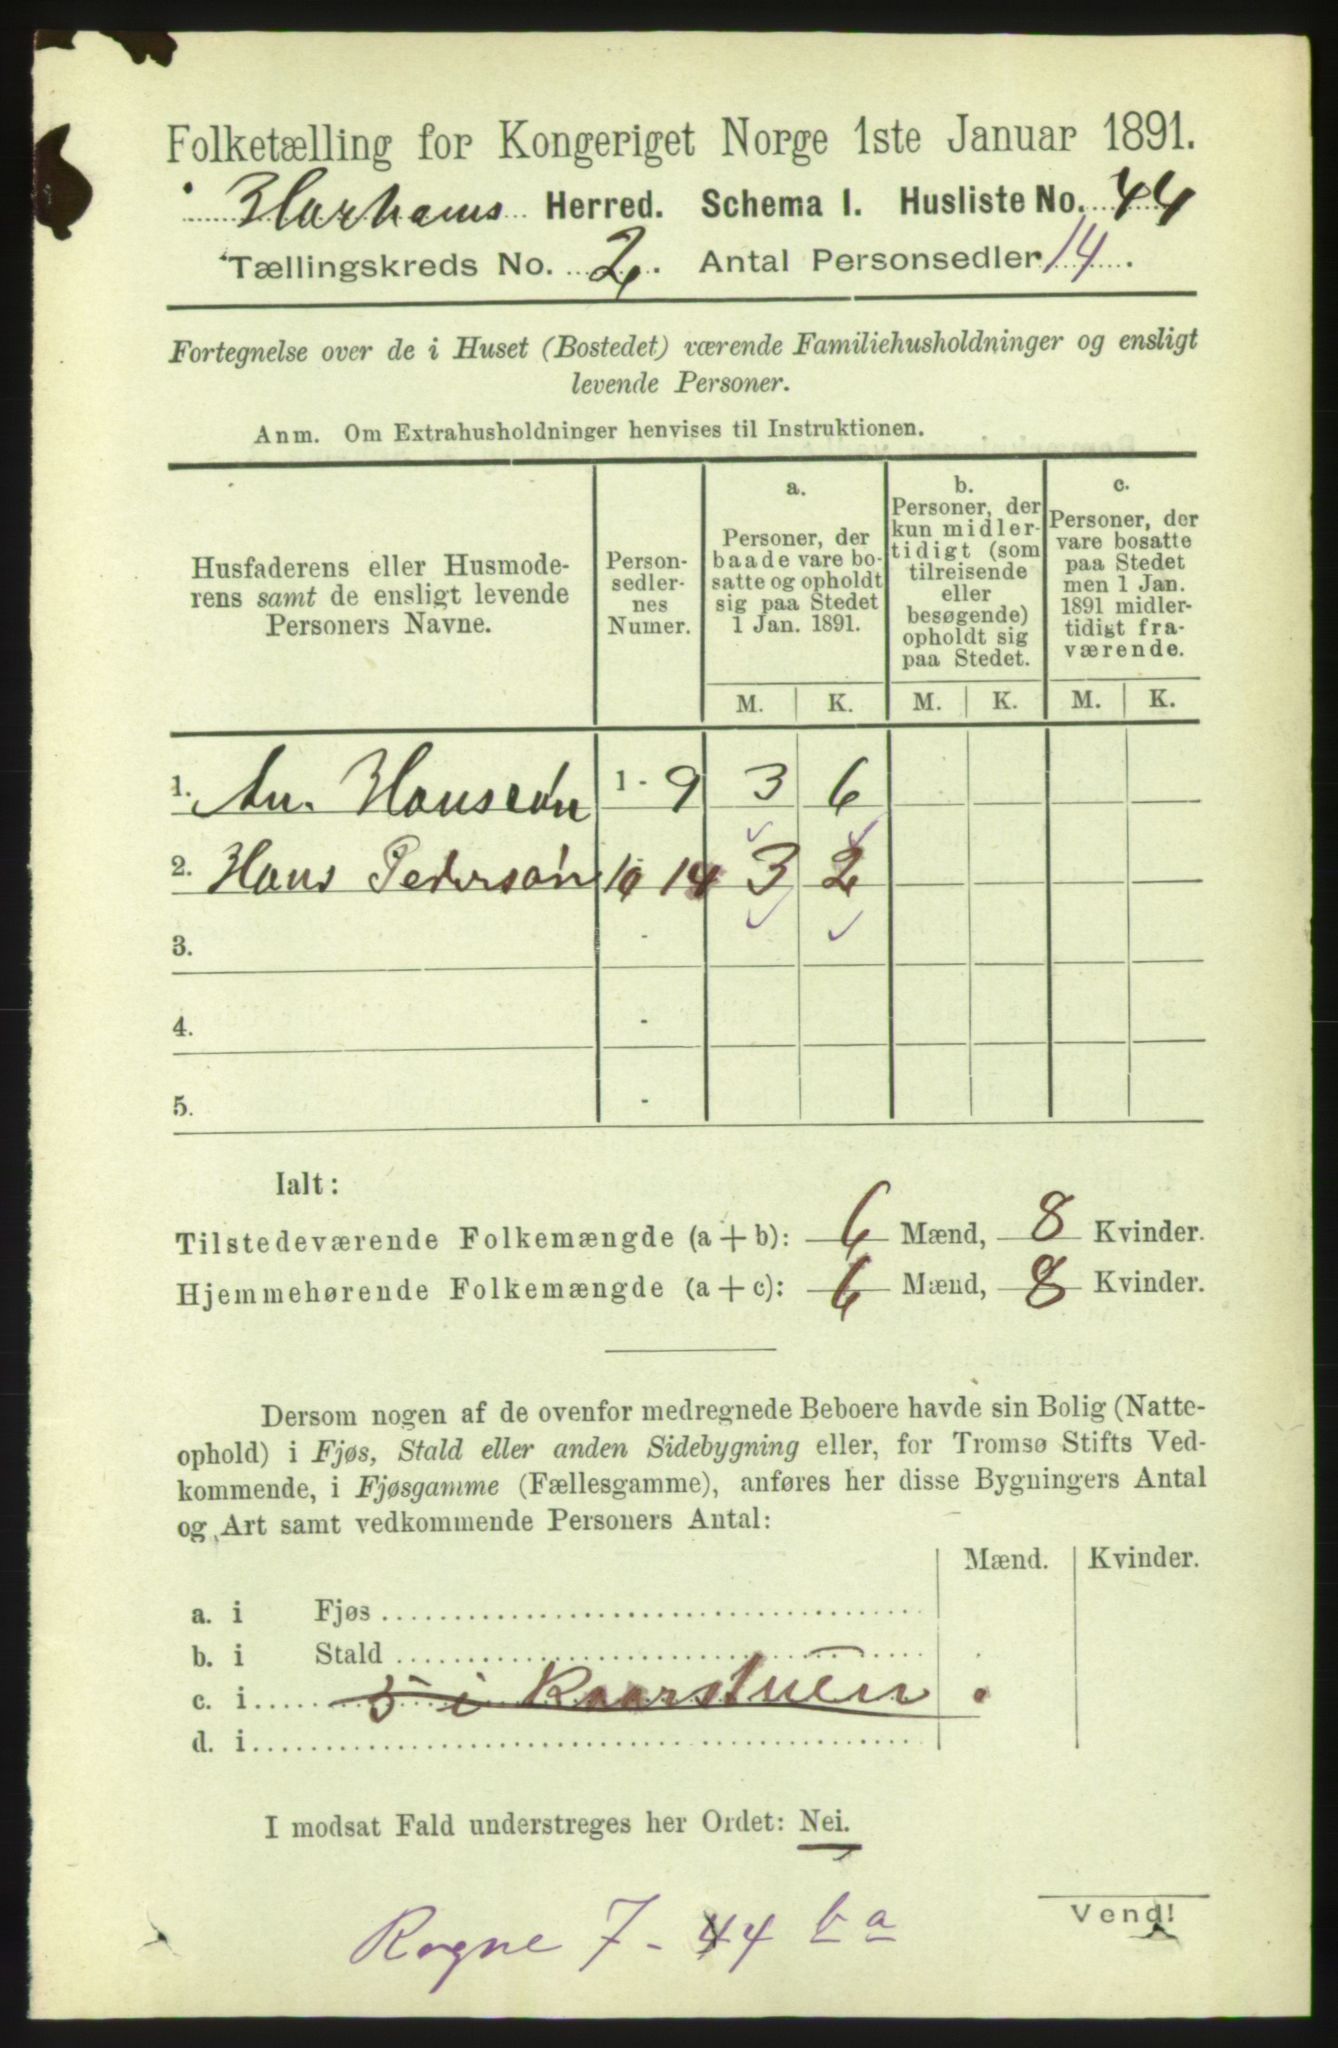 Folketælling for Kongeriget Norge 1ste Januar 1891.
Harhams Herred. Schema I. Husliste No. 44
Tællingskreds No. 2. Antal Personsedler 14.
Fortegnelse over de i Huset (Bostedet) værende Familiehusholdninger og ensligt
levende Personer.
Anm. Om Extrahusholdninger henvises til Instruktionen.
Husfaderens eller Husmode-
rens samt de ensligt levende
Personers Navne.
Person-
sedler-
nes
Numer.
a.
Personer, der
baade vare bo-
satte og opholdt
sig paa Stedet
1 Jan. 1891.
b.
Personer, der
kun midler-
tidigt (som
tilreisende
eller
besøgende)
opholdt sig
paa Stedet.
c.
Personer, der
vare bosatte
paa Stedet
men 1 Jan.
1891 midler-
tidigt fra-
værende.
M. K. M. K. M. K.
1. An. Hansøn 1 - 9 3 6
2. Hans Pedersøn 10 14 3 2
3. -
4. -
5. -
Ialt:
Tilstedeværende Folkemængde (a + b): 6 Mænd, 8 Kvinder.
Hjemmehørende Folkemængde (a + c): 6 Mænd, 8 Kvinder.
Dersom nogen af de ovenfor medregnede Beboere havde sin Bolig (Natte-
ophold) i Fjøs, Stald eller anden Sidebygning eller, for Tromsø Stifts Ved-
kommende, i Fjøsgamme (Fællesgamme), anføres her disse Bygningers Antal
og Art samt vedkommende Personers Antal:
Mænd. Kvinder.
a. i Fjøs
b. i Stald
c. i 5 i Kaarstuen
d. i
I modsat Fald understreges her Ordet: Nei.
Vend!
Rogne 7 - 44 b a